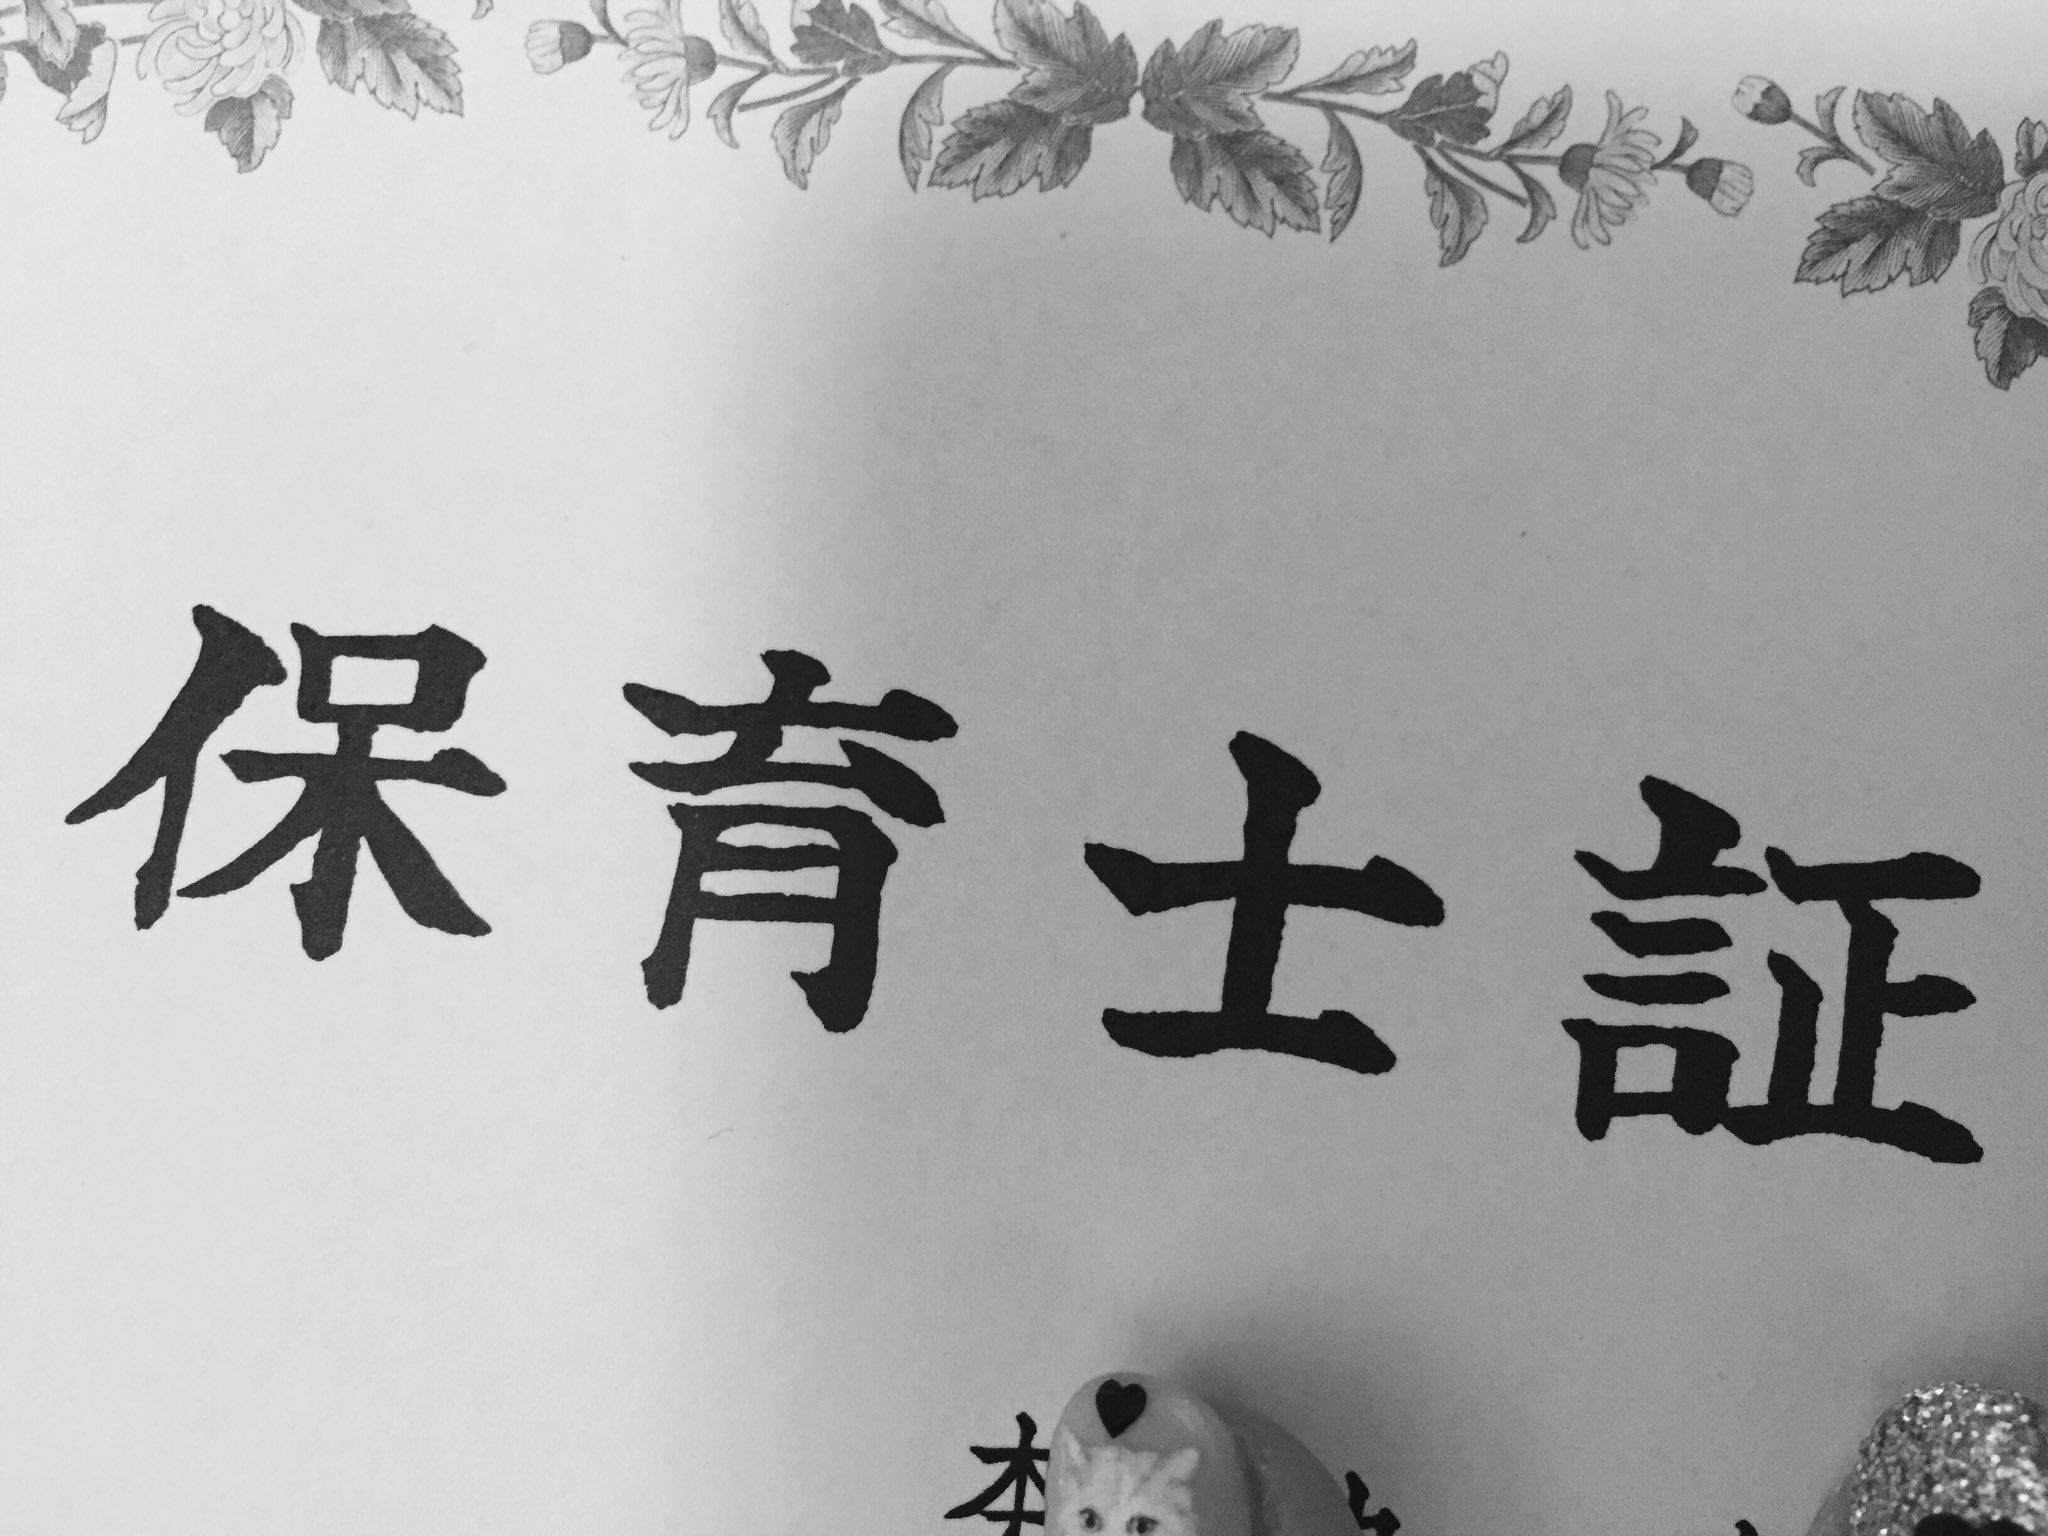 保育士証
本